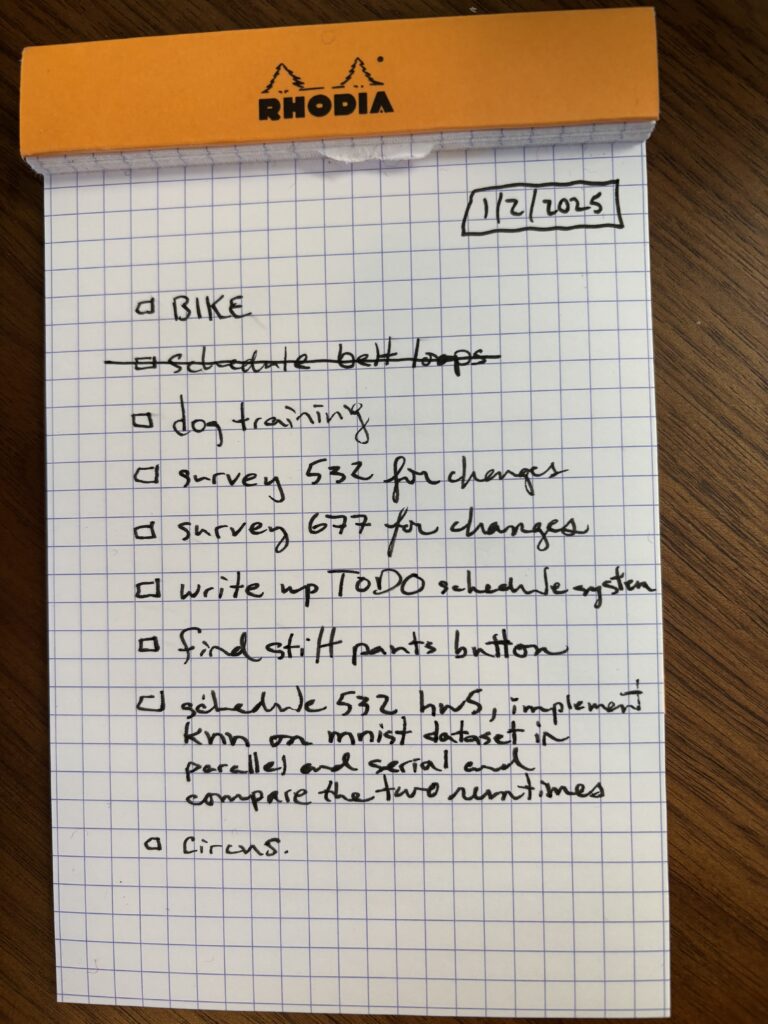 RHODIA
1/2/2025
BIKE
schedule belt loops
dog training
survey 532 for changes
survey 677 for changes
write up TODO schedule system
find stiff pants button
schedule 532 hw5, implement
knn on mnist dataset in
parallel and serial and
compare the two runtimes
circus.